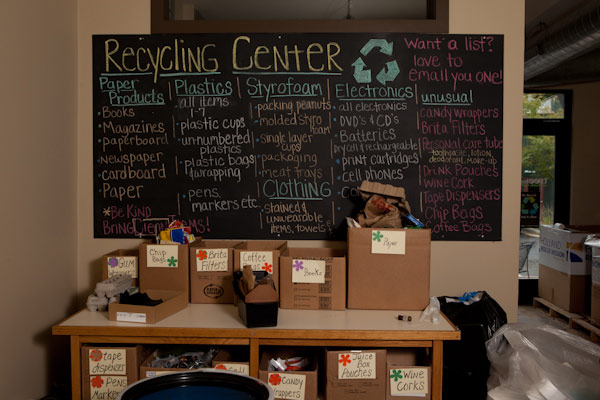 Recycling Center
Want a list?
love to
email you one!
Paper
Products
Books
Magazines
paperboard
newspaper
cardboard
Paper
*Be Kind
Plastics
all items
1-7
plastic cups
unnumbered
plastics
plastic bags
& wrapping
pens,
markers etc.
Styrofoam
packing peanuts
molded styro
foam
single layer
cups
packaging
meat trays
Clothing
stained &
unwearable
items, towels
Electronics
all electronics
DVD's & CD's
Batteries
print cartridges
cell phones
unusual
candy wrappers
Brita Filters
Personal care tube
toothpaste, lotion,
deodorant, make-up
Drink Pouches
Wine Cork
Tape Dispensers
Chip Bags
Coffee Bags
Chip
Bags
Brita
Filters
Coffee
Bags
Books
Paper
tape
dispensers
Pens
Candy
wrappers
Juice Box
Pouches
Wine
Corks